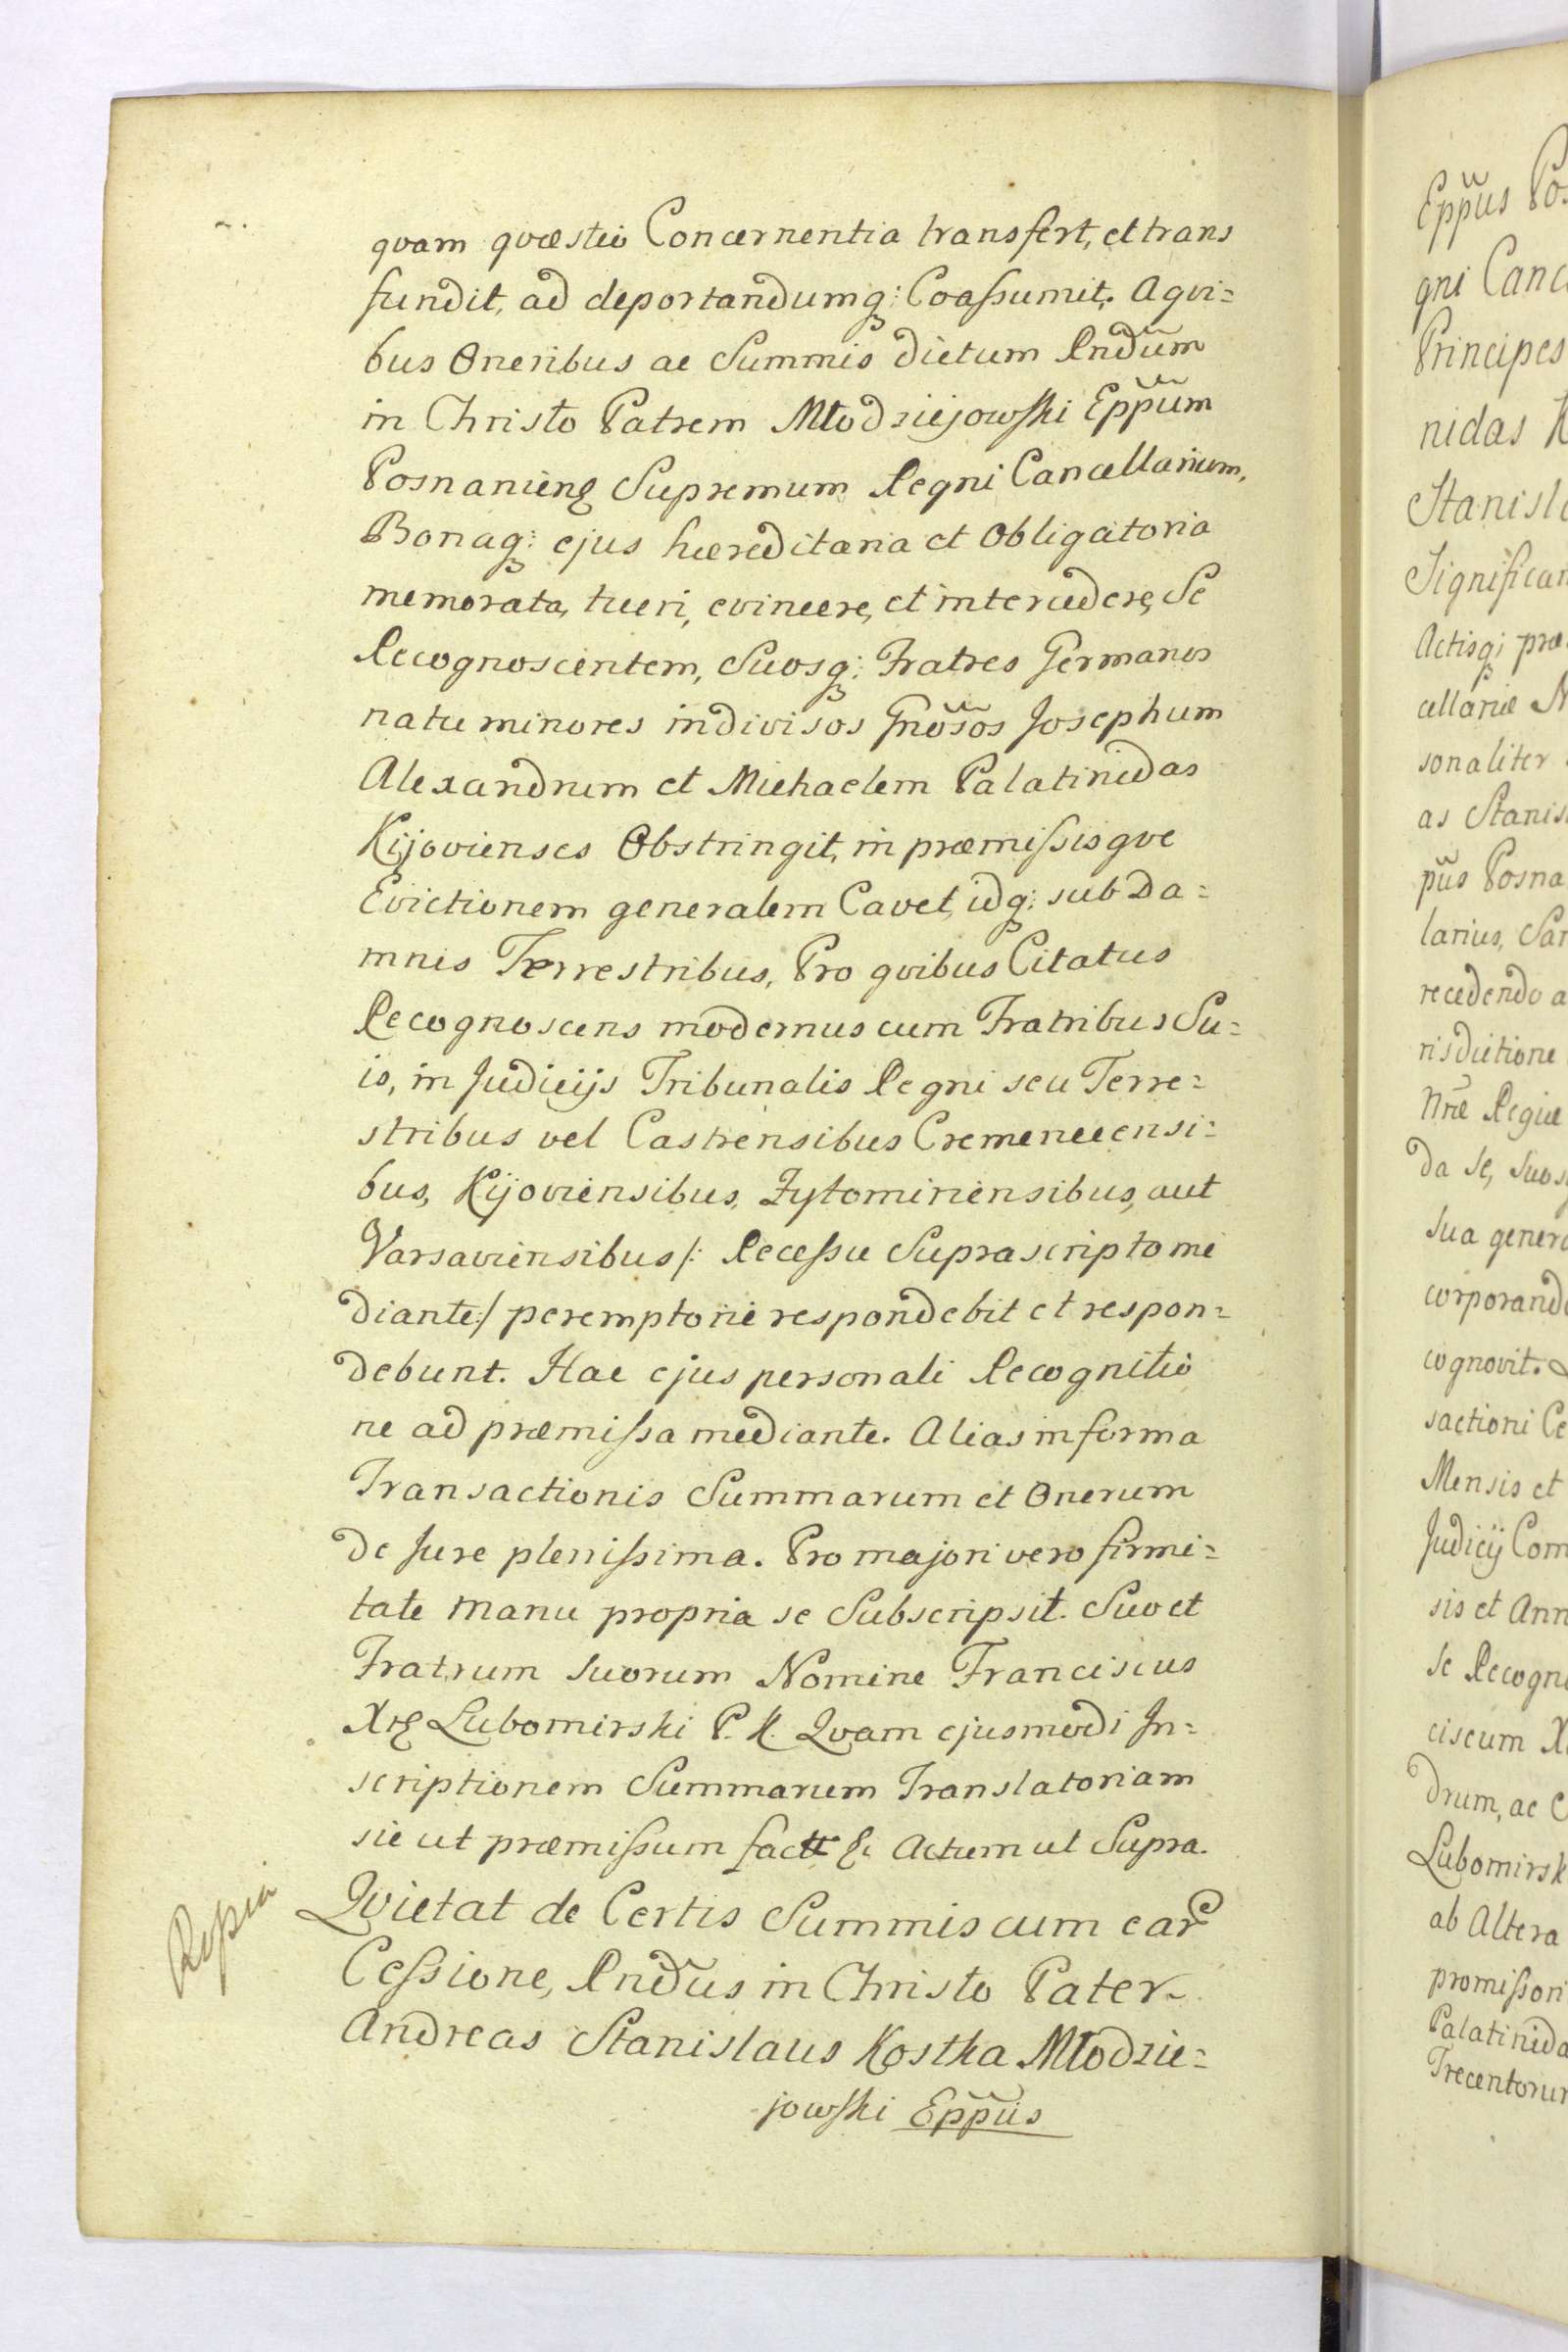 quam quæstio Concernentia transfert, et trans
fundit, ad deportandumq; Coassumit. A qvi=
bus Oneribus ac Summis dictum Rndũm
in Christo Patrem Młodziejowski Epp̃um
Posnanieñ Supremum Regni Cancellarium,
Bonaq; ejus hæreditaria et Obligatoria
memorata, tueri, evincere, et intercedere, Se
Recognoscentem, Suosq; Fratres Germanos
natu minores indivisos Gnõsos Josephum
Alexandrum et Michaelem Palatinidas
Kijovienses Obstringit, in præmissisqve
Evictionem generalem Cavet, idq; sub Da=
mnis Terrestribus, Pro qvibus Citatus
Recognoscens modernus cum Fratribus Su=
is, in Judicijs Tribunalis Regni seu Terre=
stribus vel Castrensibus Cremenecensi=
bus, Kijoviensibus, Zytomiriensibus, aut
Varsaviensibus /: Recessu Suprascripto me
diante :/ peremptorie respondebit et respon=
debunt. Hac ejus personali Recognitio
ne ad præmissa mediante. Alias in forma
Transactionis Summarum et Onerum
de Jure plenissima. Pro majori vero firmi=
tate manu propria se Subscripsit. Suo et
Fratrum suorum Nomine Franciscus
Xże Lubomirski P. K. Qvam ejusmodi In=
scriptionem Summarum Translatoriam
sic ut præmissum factt &c Actum ut Supra.
Qvietat de Certis Summis cum ear
Cessione, Rndũs in Christo Pater
Andreas Stanislaus Kostka Młodzie=
jowski Epp̃us
Eppũs Pos
gni Canc
Principes
nidas K
Stanisla
Significan
Actisq; præ
cellariæ N
sonaliter
as Stanis
pũs Posna
larius, San
recedendo a
risdictione
Nræ Regiæ
da se, suos
sua genera
corporand
cognovit.
sactioni Ce
Mensis et
Judicij Com
sis et Ann
se Recogn
ciscum X
drum, ac
Lubomirsk
ab Altera
promissori
Palatinida
Trecentorum